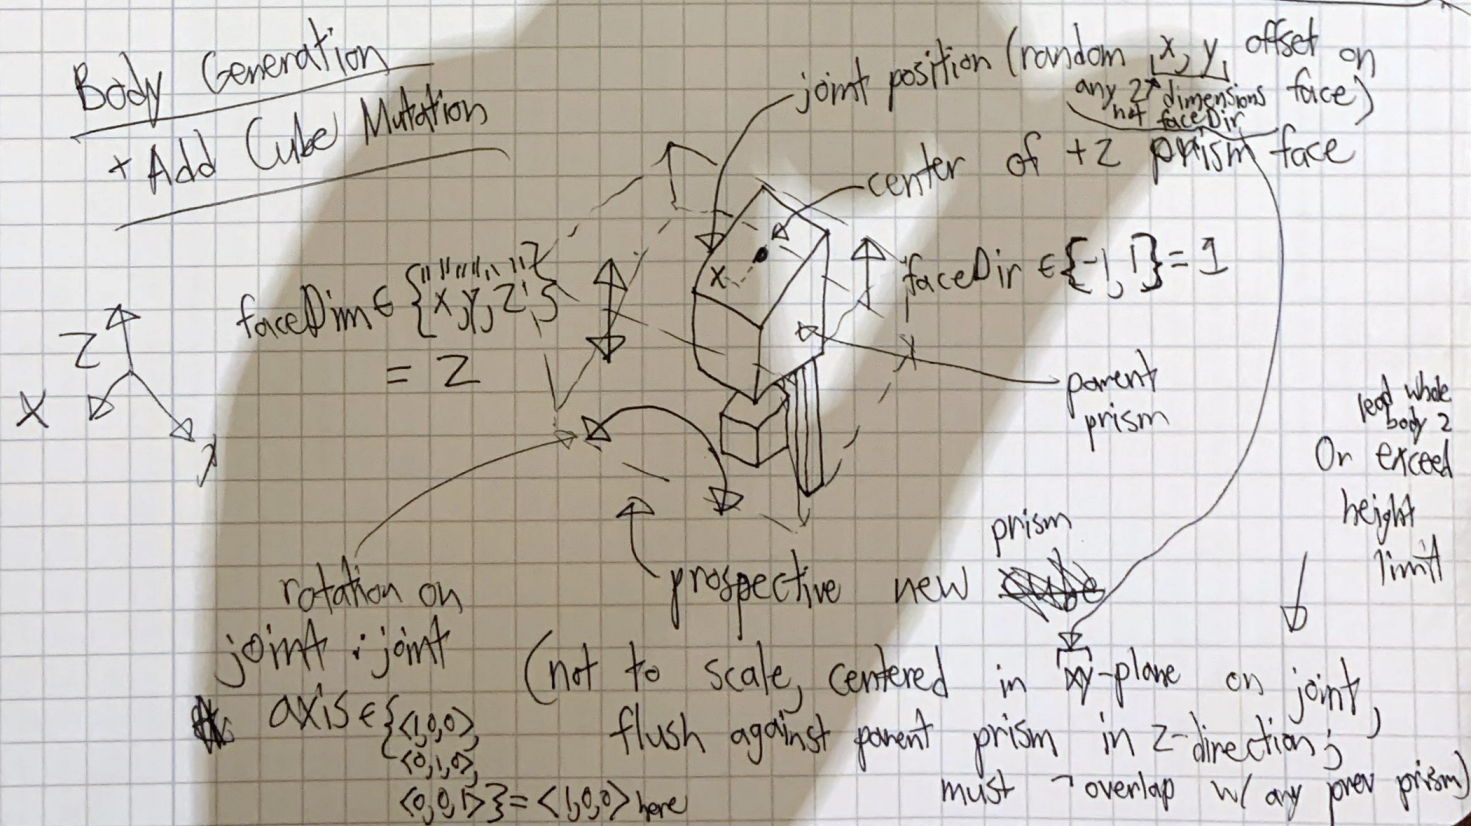 Body Generation
+ Add Cube Mutation
joint position (random x, y, offset on
any 2 dimensions face)
not faceDir
center of +Z prism face
faceDim ∈ {"x","y","z"}
= Z
faceDir ∈ {-1, 1} = 1
Z
X
y
X
parent
prism
body 2
Or exceed
height
limit
rotation on
joint : joint
axis ∈ {<1,0,0>,
<0,1,0>,
<0,0,1>} = <1,0,0> here
prism
prospective new
(not to scale, centered in xy-plane on joint,
flush against parent prism in z-direction;
must ¬ overlap w/ any prev prism)